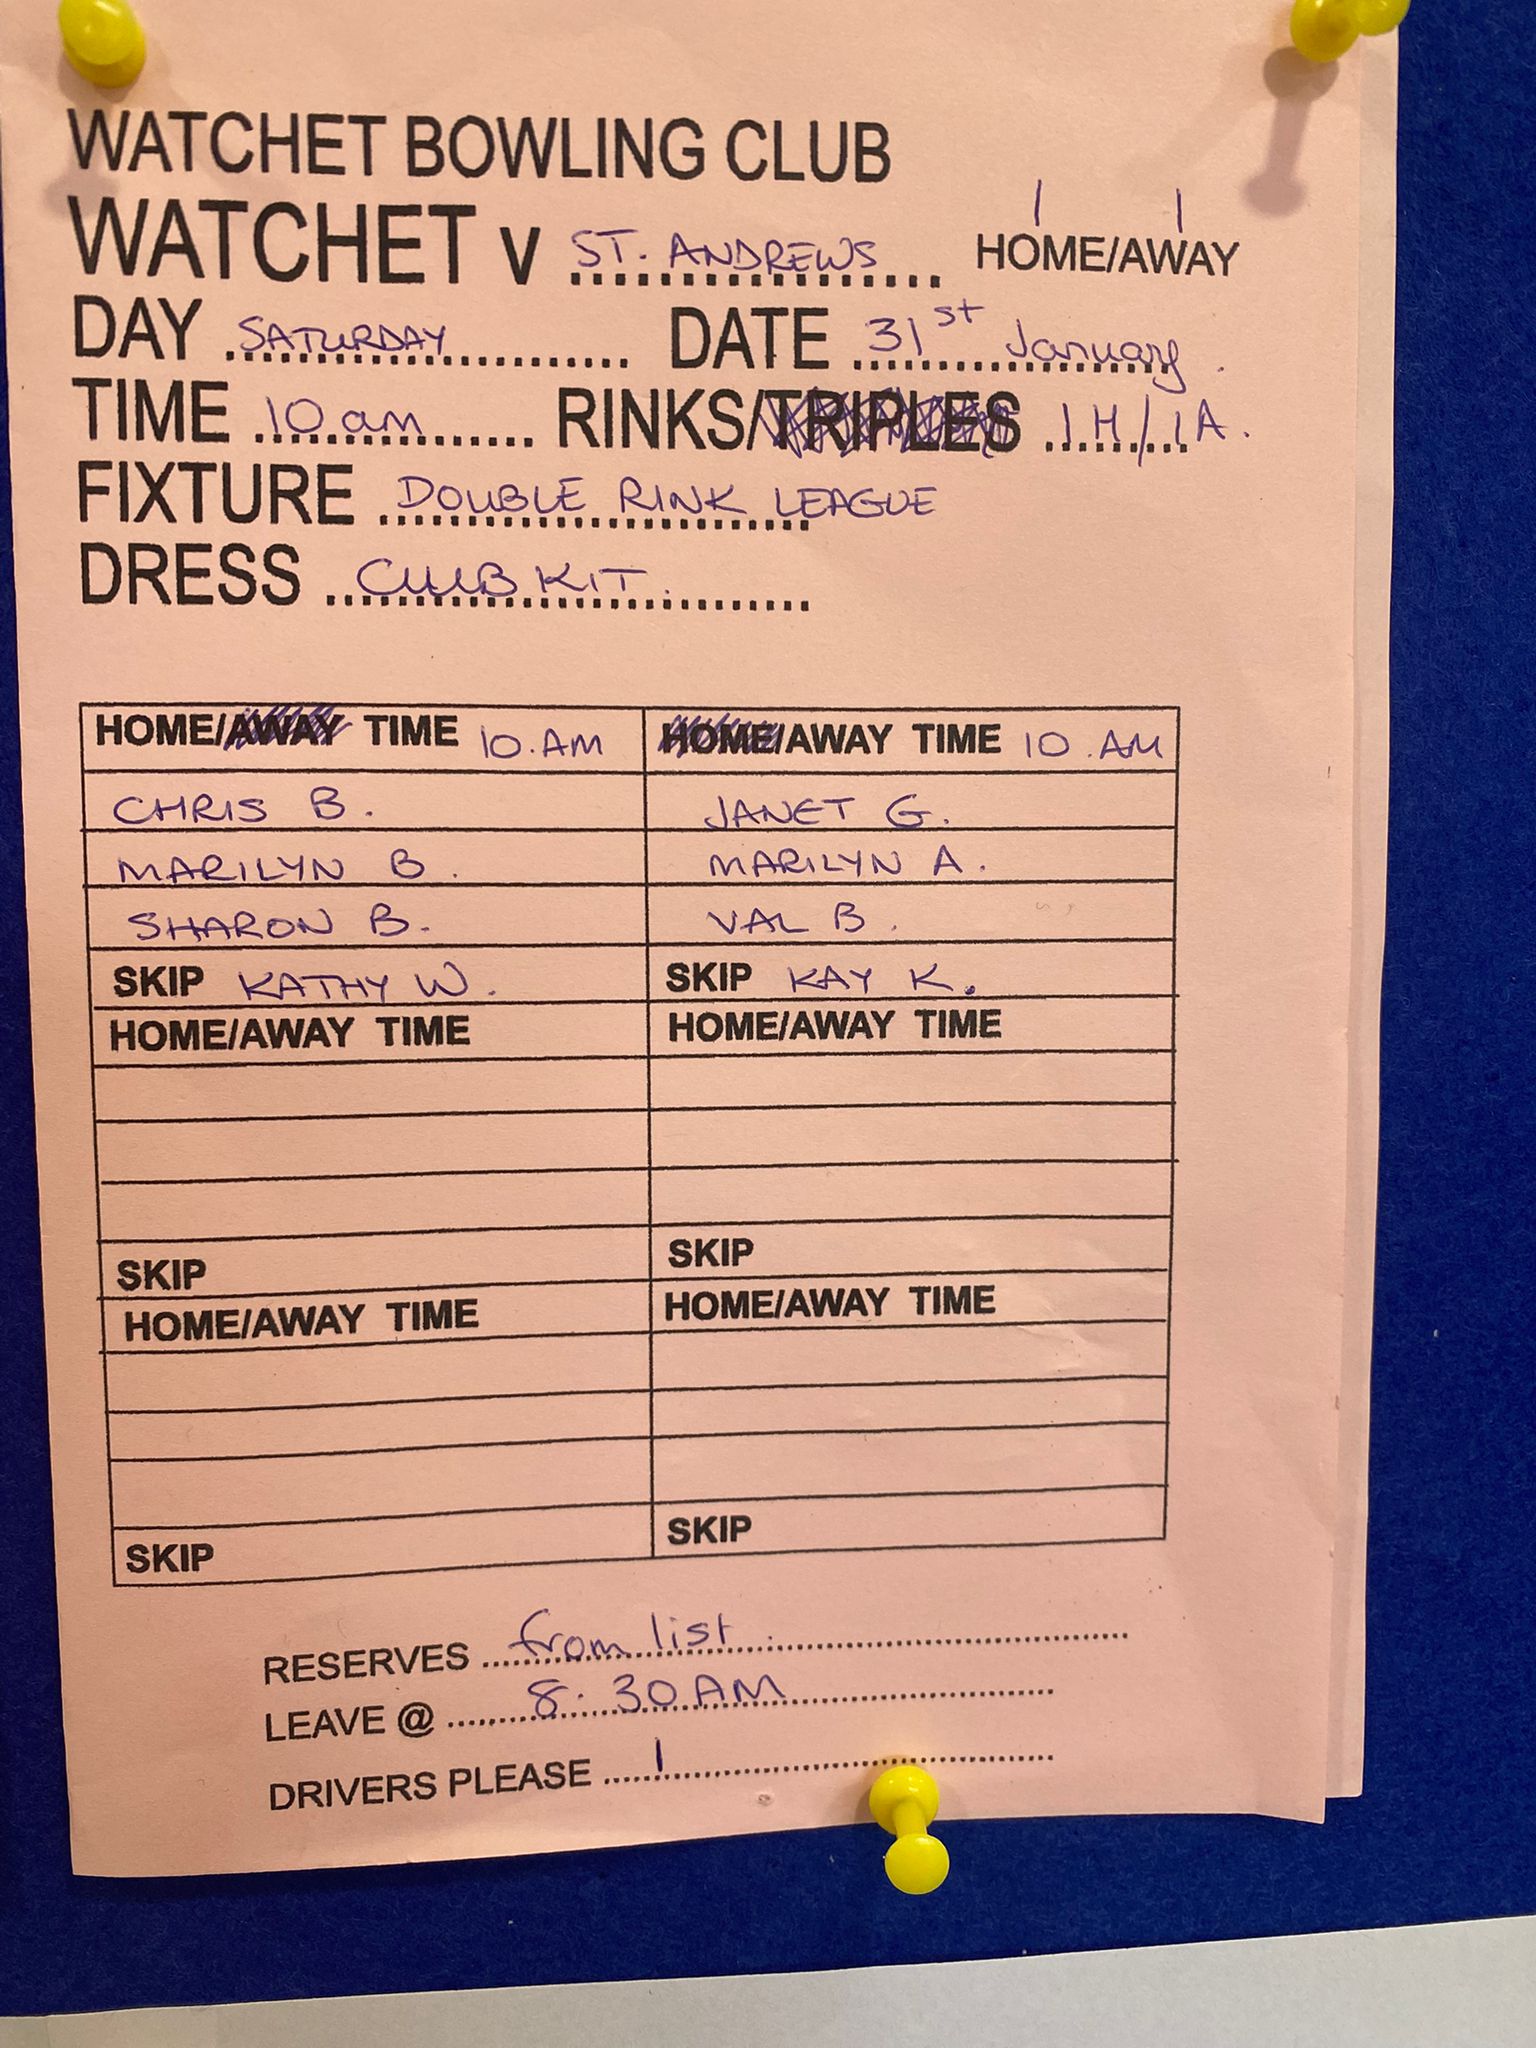 WATCHET BOWLING CLUB
1 1
WATCHET v ST. ANDREWS HOME/AWAY
DAY SATURDAY DATE 31st January.
TIME 10 am RINKS/TRIPLES 1H/1A.
FIXTURE DOUBLE RINK LEAGUE
DRESS CLUB KIT.
HOME/AWAY TIME 10.AM HOME/AWAY TIME 10.AM
CHRIS B. JANET G.
MARILYN B. MARILYN A.
SHARON B. VAL B.
SKIP KATHY W. SKIP KAY K.
HOME/AWAY TIME HOME/AWAY TIME
SKIP SKIP
HOME/AWAY TIME HOME/AWAY TIME
SKIP SKIP
RESERVES from list
LEAVE @ 8.30AM
DRIVERS PLEASE 1